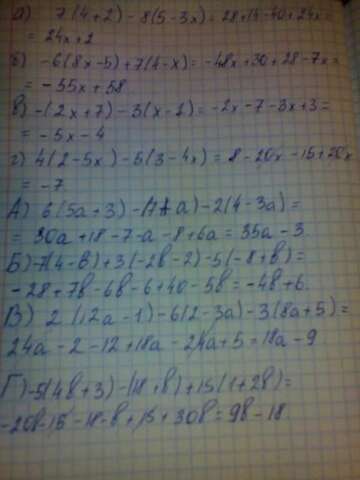 а) 7(4+2)-8(5-3x)=28+14-40+24x=
= 24x+2
б) -6(8x-5)+7(4-x)=-48x+30+28-7x=
= -55x+58
в) -(2x+7)-3(x-1)=-2x-7-3x+3=
= -5x-4
г) 4(2-5x)-5(3-4x)=8-20x-15+20x
= -7
А) 6(5a+3)-(7+a)-2(4-3a)=
= 30a+18-7-a-8+6a=35a-3
Б) -7(4-в)+3(-2в-2)-5(-8+в)=
-28+7в-6в-6+40-5в=-4в+6.
В) 2(12a-1)-6(2-3a)-3(8a+5)=
24a-2-12+18a-24a+5=18a-9
Г) -5(4в+3)-(18+в)+15(1+2в)=
-20в-15-18-в+15+30в=9в-18